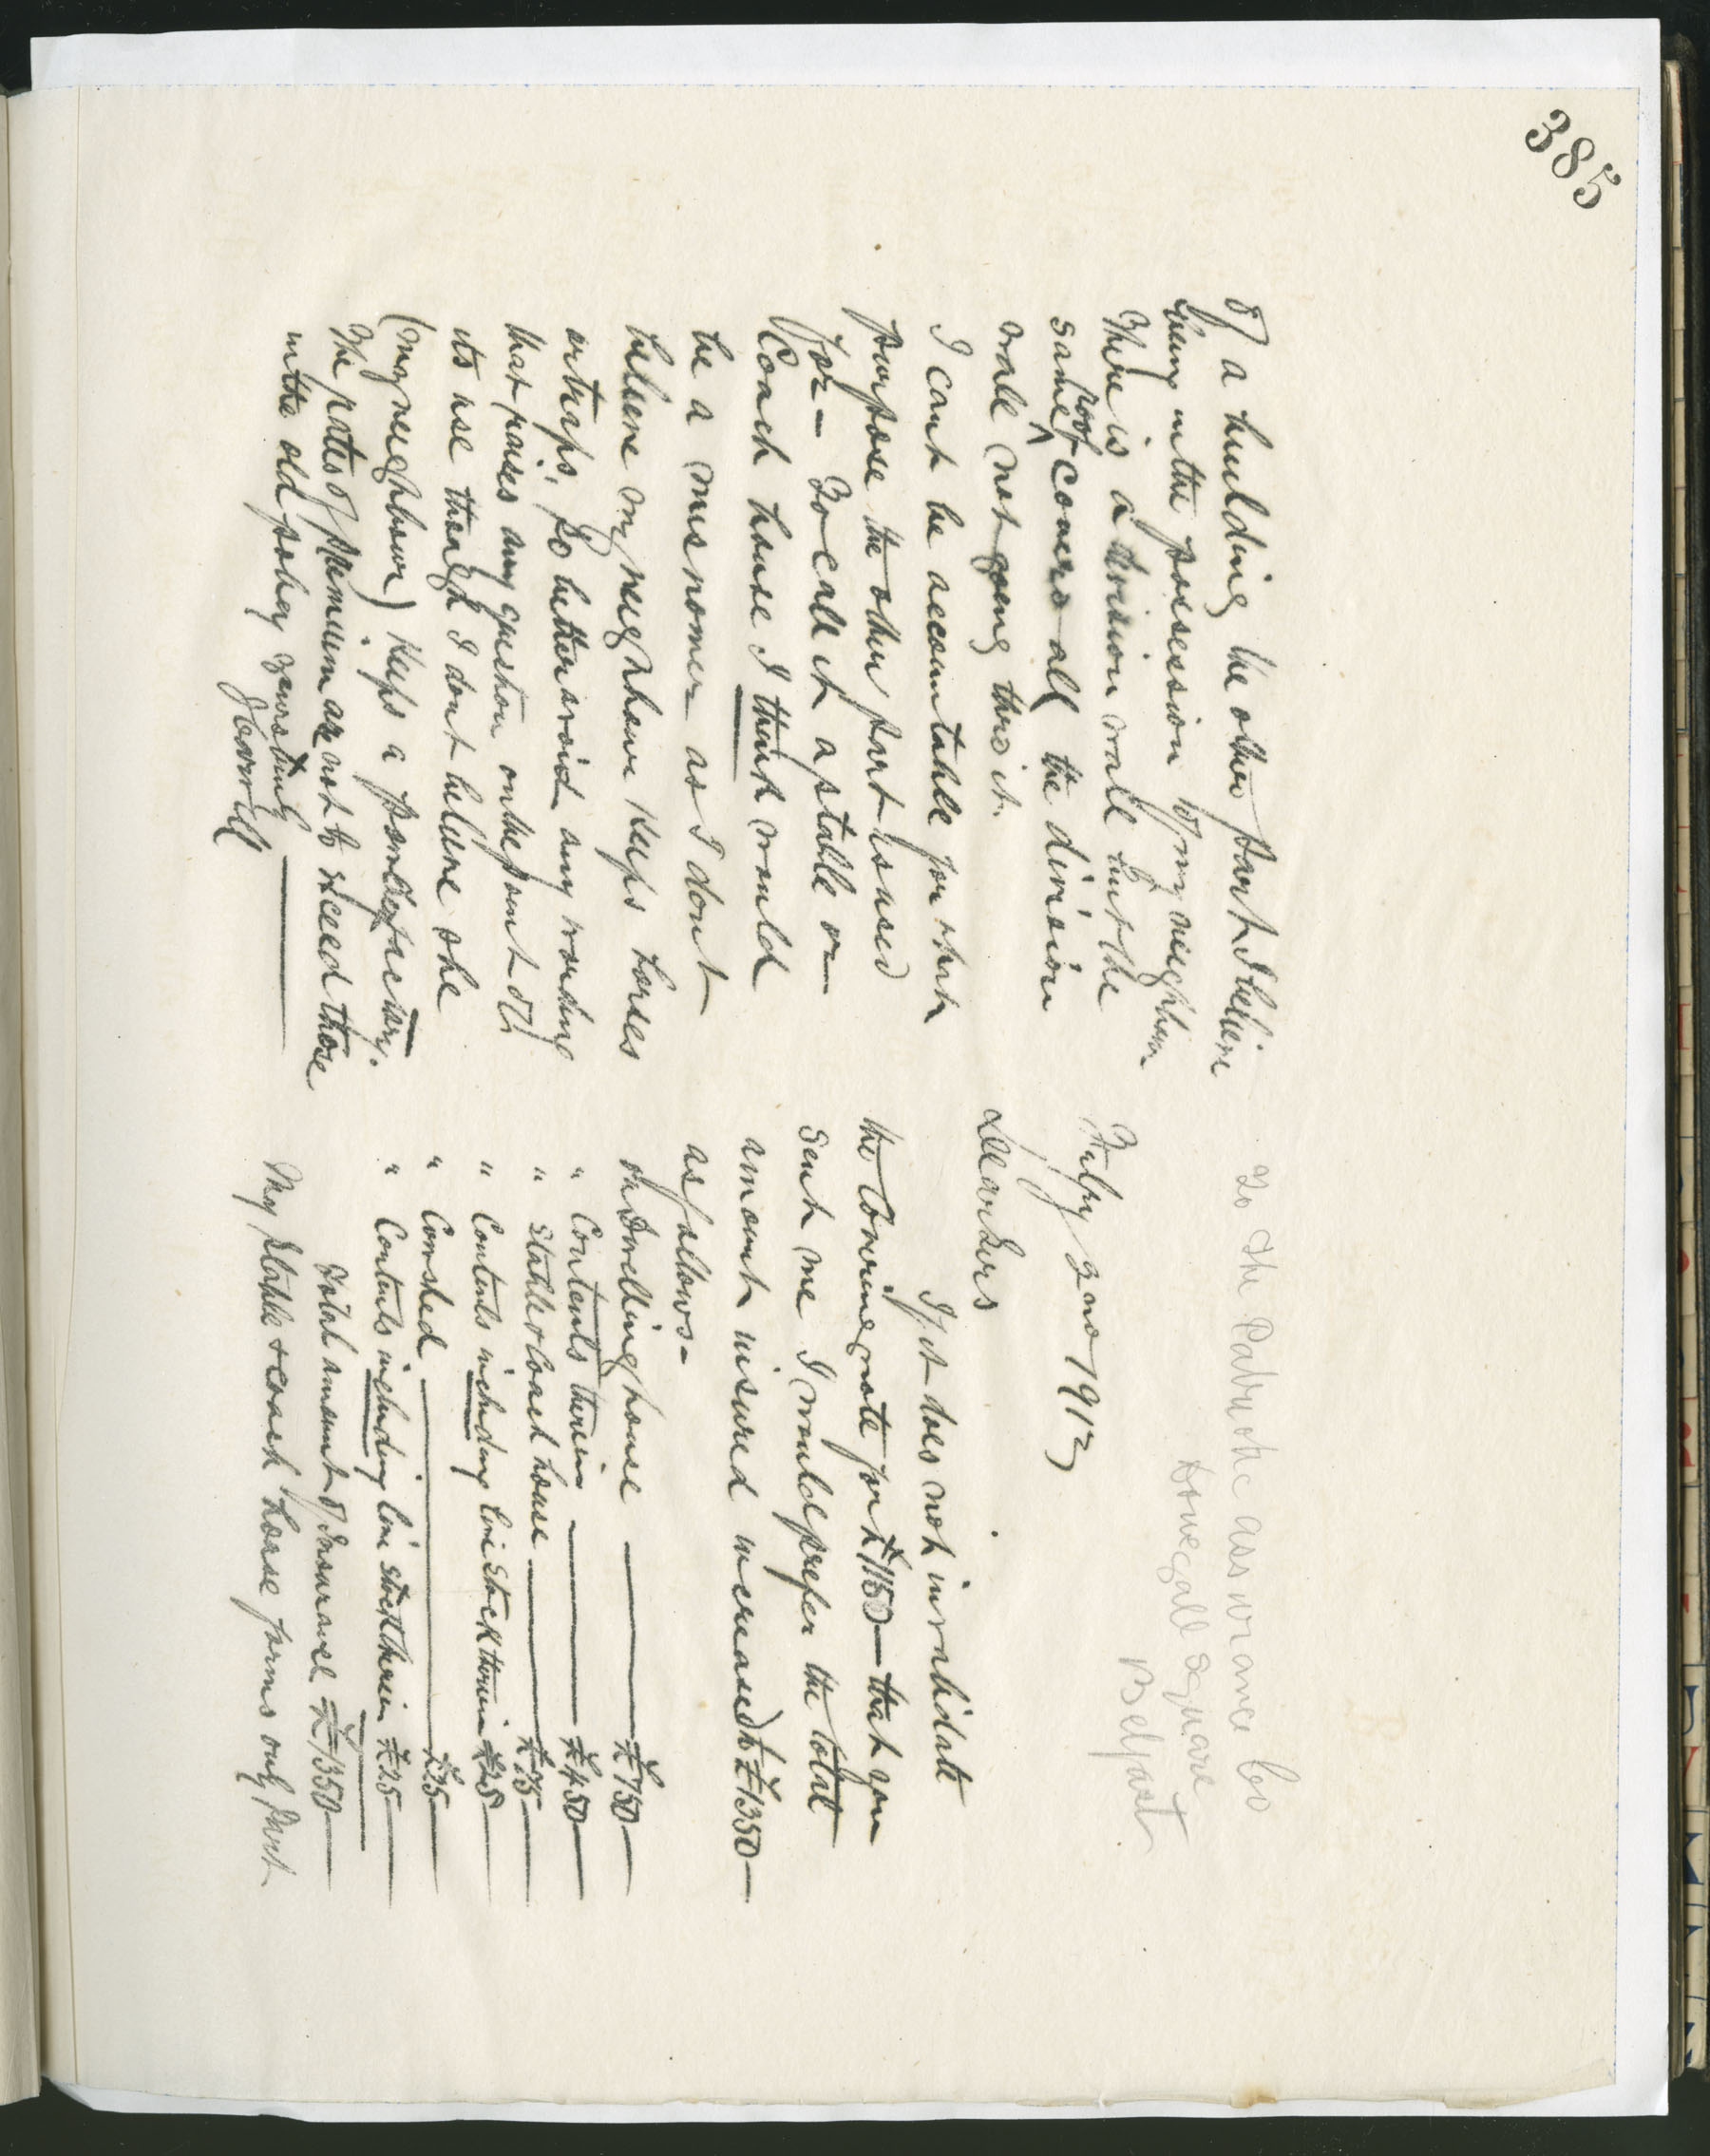 385
To the Patriotic assurance Co
Donegall Square
Belfast
Feby 2nd 1912
Dear Sirs
If it does not invalidate
the Covering note for £1150 — that you
sent me I would prefer the total
amount insured increased to £1350 —
as follows —
on Dwelling house — £750 —
" Contents therein — £450 —
" Stable & Coach house — £75 —
" Contents including live stock therein £25 —
" Cowshed — £25 —
" Contents including live stock therein £25 —
Total amount of Insurance £1350 —
My stable & coach house forms only part
of a building the other part I believe
being in the possession of my neighbour
There is a division wall but the
same roof covers all the division
wall not going thro it.
I cant be accountable for what
purpose the other part is used
for — To call it a stable or
Coach house I think would
be a misnomer as I dont
believe my neighbour keeps horses
or traps, so better avoid any wording
that raises any question on the point of
its use though I dont believe she
(my neighbour) keeps a
The rates of premium are not to exceed those
in the old policy yours truly